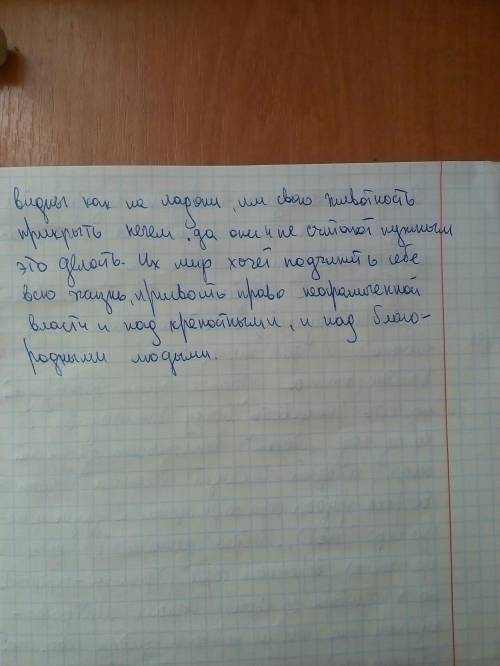 видны как на ладони, им свою животность
прикрыть нечем, да они и не считают нужным
это делать. Их мир хочет подчинить себе
всю жизнь, присвоить право неограниченной
власти и над крепостными, и над благо-
родными людьми.